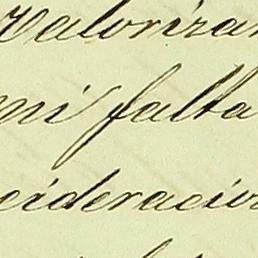 valorizar
mi falta
cideracion